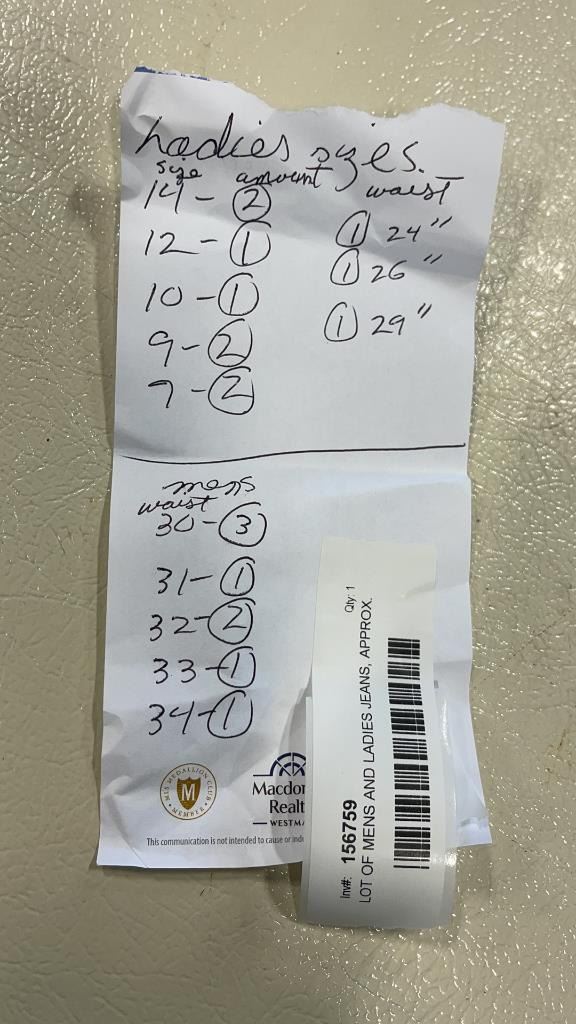 Ladies sizes.
size amount waist
14 - 2
12 - 1
10 - 1
9 - 2
7 - 2
1 24"
1 26"
1 29"
mens
waist
30 - 3
31 - 1
32 - 2
33 - 1
34 - 1
MLS MEDALLION CLUB
M
MEMBER
Realt
WESTMA
This communication is not intended to cause or
Inv#: 156759 Qty: 1
LOT OF MENS AND LADIES JEANS, APPROX.